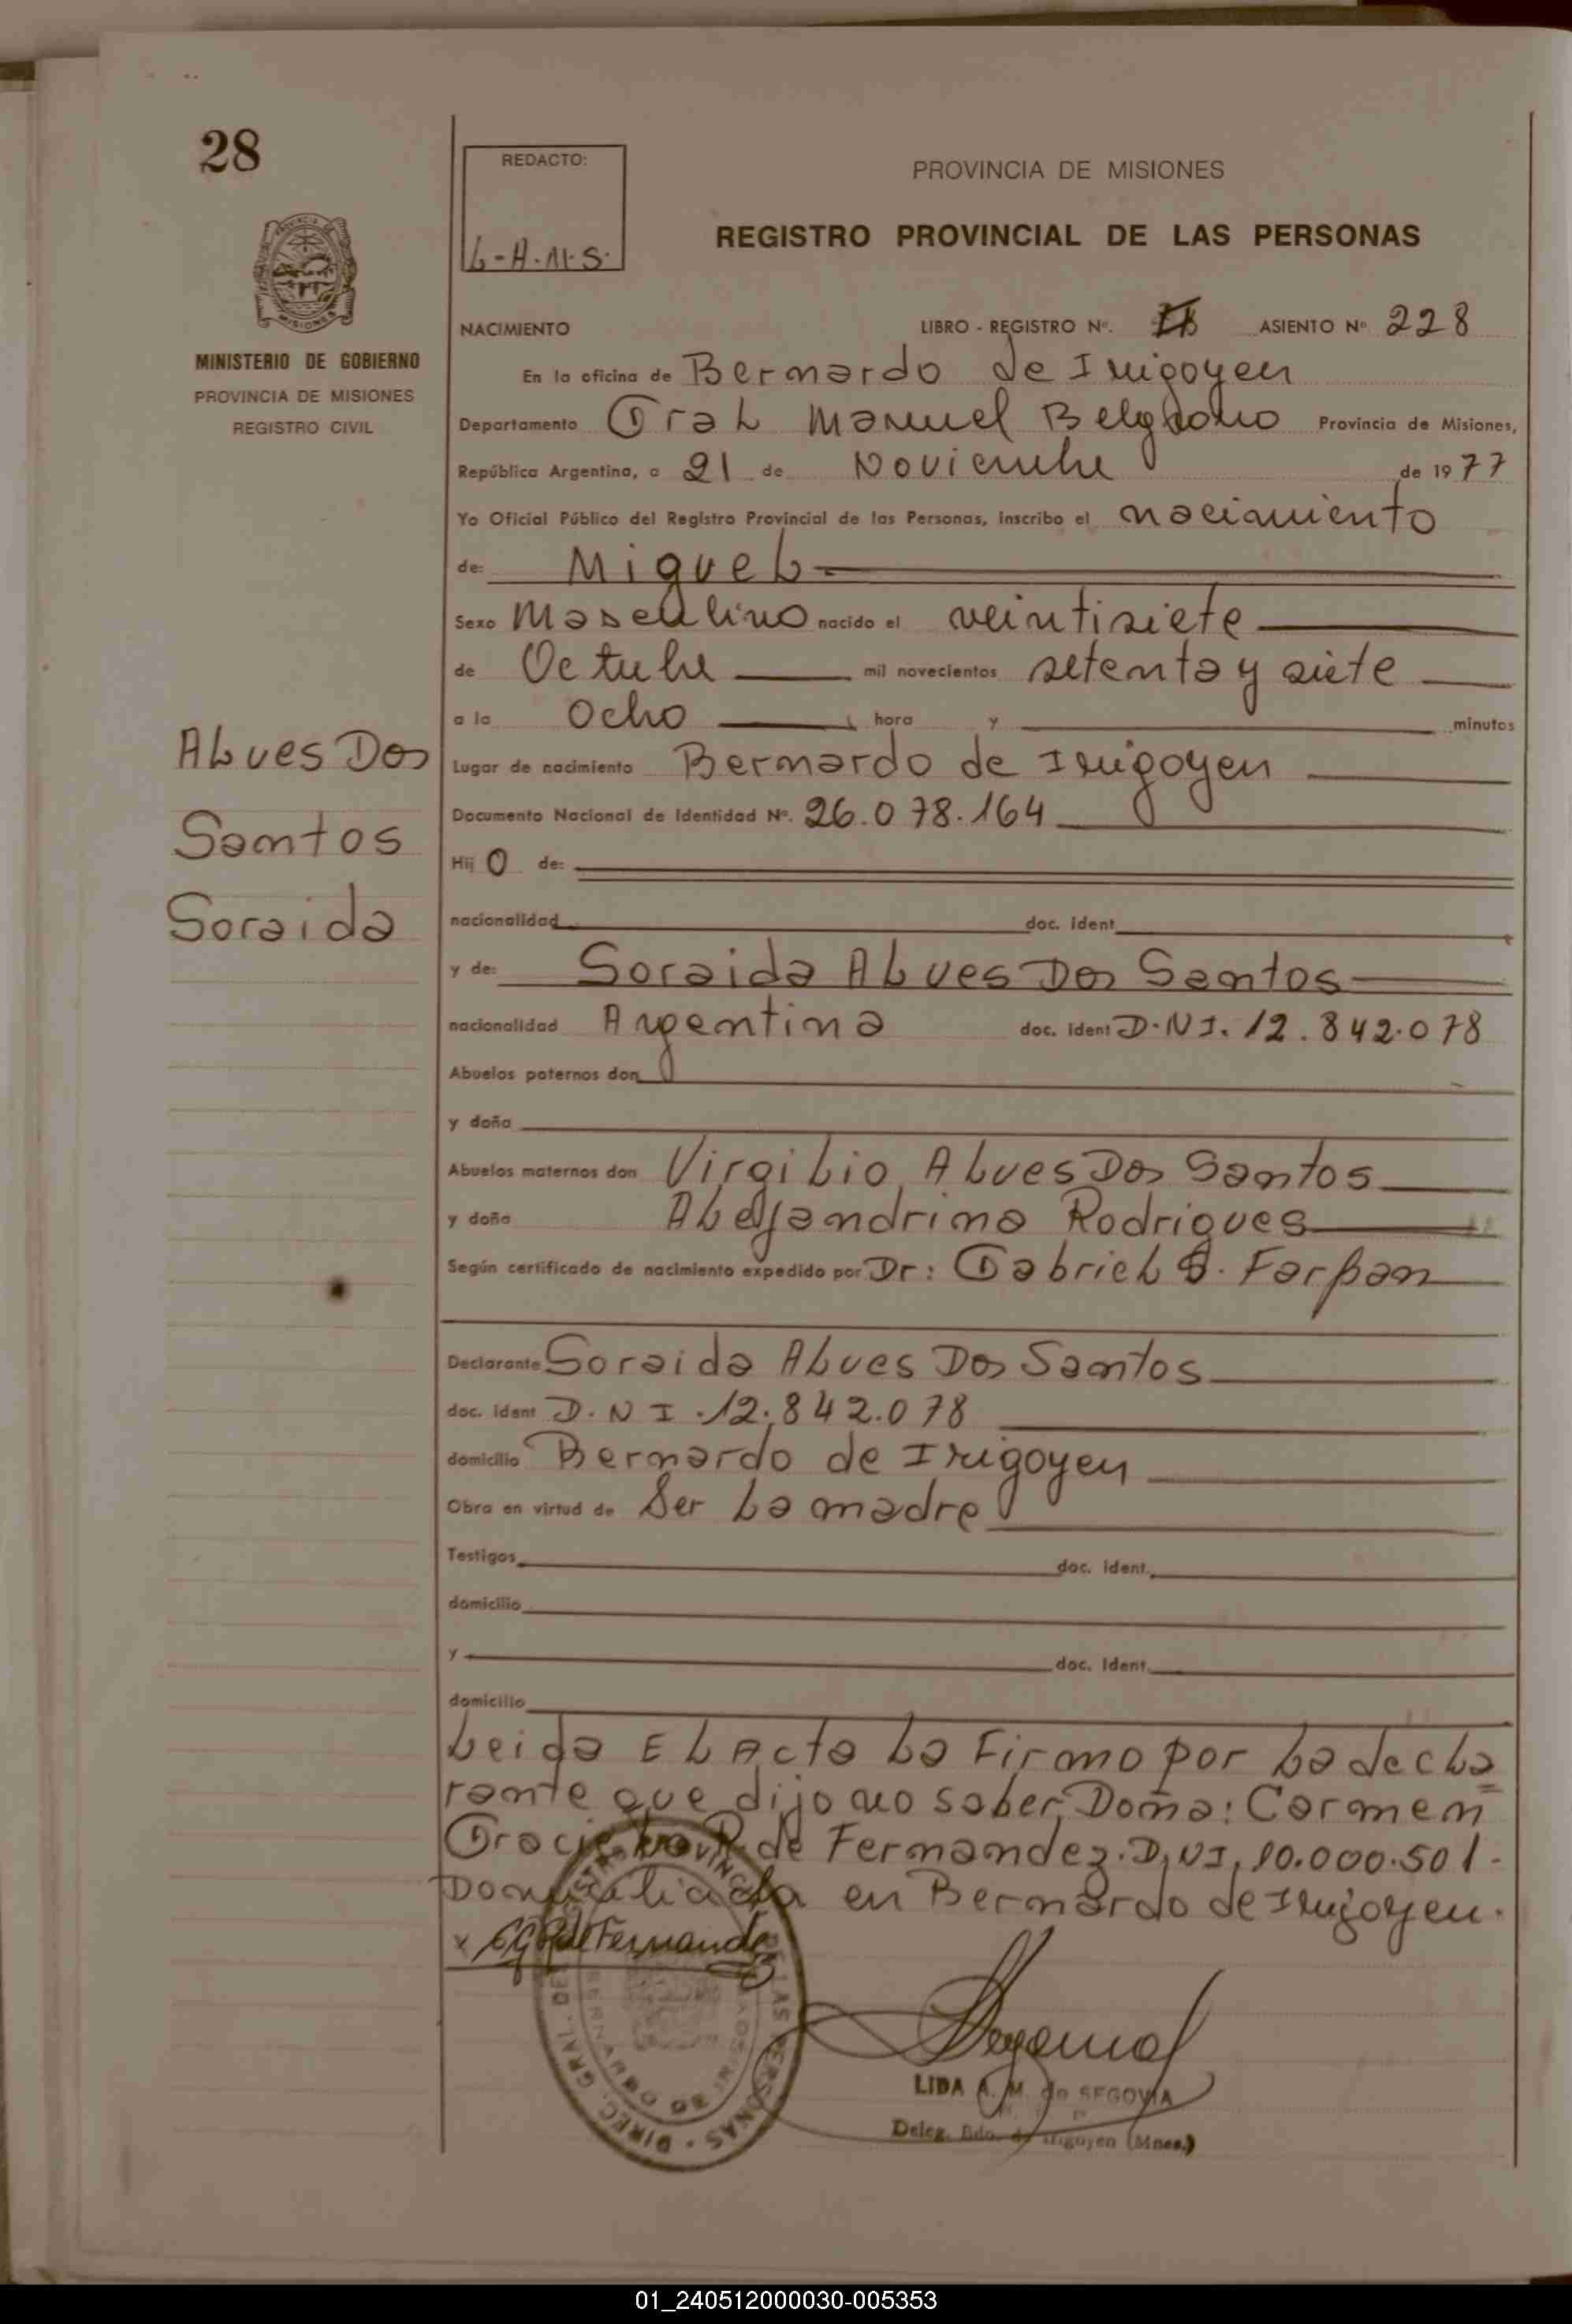 28
REDACTO:
L-A.M.S.
PROVINCIA DE MISIONES
REGISTRO PROVINCIAL DE LAS PERSONAS
MISIONES
MINISTERIO DE GOBIERNO
PROVINCIA DE MISIONES
REGISTRO CIVIL
NACIMIENTO LIBRO - REGISTRO Nº. ASIENTO Nº 228
En la oficina de Bernardo de Irigoyen
Departamento Gral Manuel Belgrano Provincia de Misiones,
República Argentina, a 21 de Noviembre de 1977
Yo Oficial Público del Registro Provincial de las Personas, inscribo el nacimiento
de: Miguel
Sexo Masculino nacido el veintisiete
de Octubre mil novecientos setenta y siete
a la Ocho hora y minutos
Lugar de nacimiento Bernardo de Irigoyen
Documento Nacional de Identidad Nº. 26.078.164
Hij o de:
nacionalidad doc. ident
y de: Soraida Alves Dos Santos
nacionalidad Argentina doc. ident D.N.I. 12.842.078
Abuelos paternos don
y doña
Abuelos maternos don Virgilio Alves Dos Santos
y doña Aleyandrina Rodrigues
Según certificado de nacimiento expedido por Dr: Gabriel Farfan
Declarante Soraida Alves Dos Santos
doc. ident D.N.I.12.842.078
domicilio Bernardo de Irigoyen
Obra en virtud de Ser la madre
Testigos doc. ident.
domicilio
y doc. ident.
domicilio
Leida El Acta La Firma por La decla
rante que dijo no saber, Doña: Carmen
Graciela R. de Fernandez. D.NI. 10.000.501.
Domiciliada en Bernardo de Irigoyen.
x CGR de Fernandez
Alves Dos
Santos
Soraida
LIDA A. M. de SEGOVIA
Deleg. Bdo. de Irigoyen (Mnes.)
01_240512000030-005353